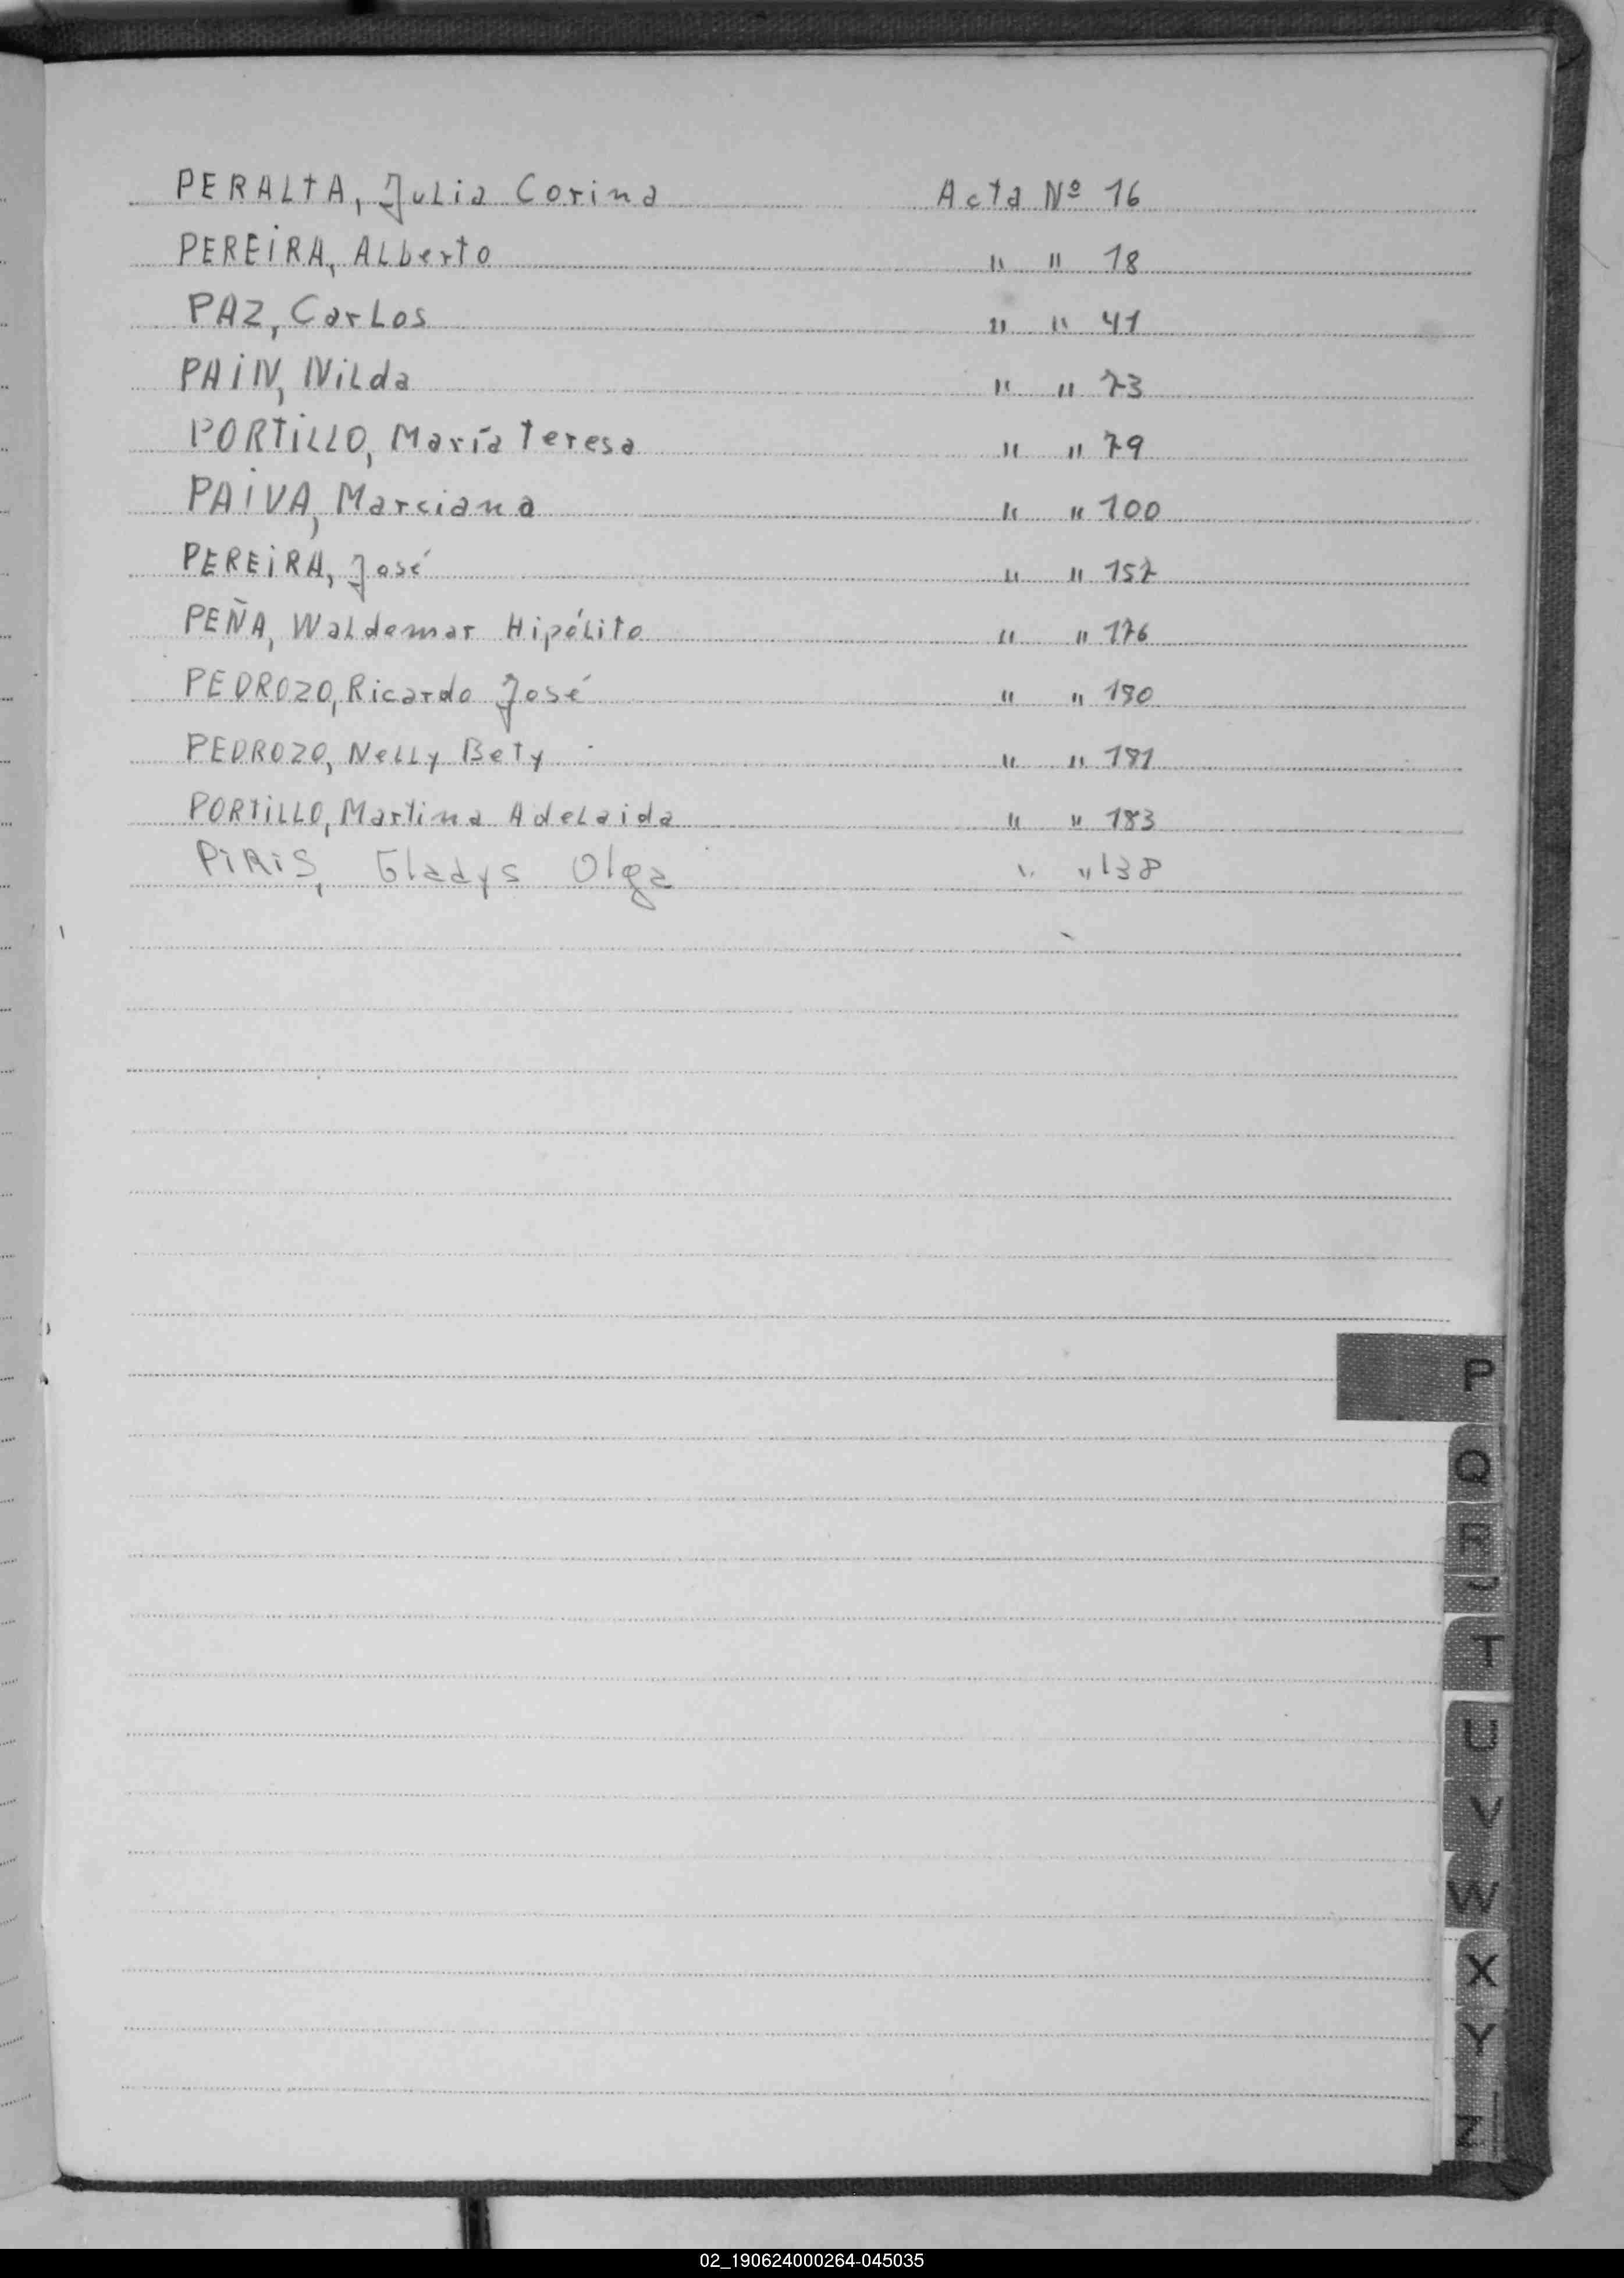 PERALTA, Julia Corina Acta Nº 16
PEREIRA, Alberto " " 18
PAZ, Carlos " " 41
PAIN, Nilda " " 73
PORTILLO, María Teresa " " 79
PAIVA, Marciana " " 100
PEREIRA, José " " 157
PEÑA, Waldemar Hipólito " " 176
PEDROZO, Ricardo José " " 180
PEDROZO, Nelly Bety " " 181
PORTILLO, Martina Adelaida " " 183
PIRIS, Gladys Olga " " 138
P
Q
R
T
U
V
W
X
Y
Z
02_190624000264-045035